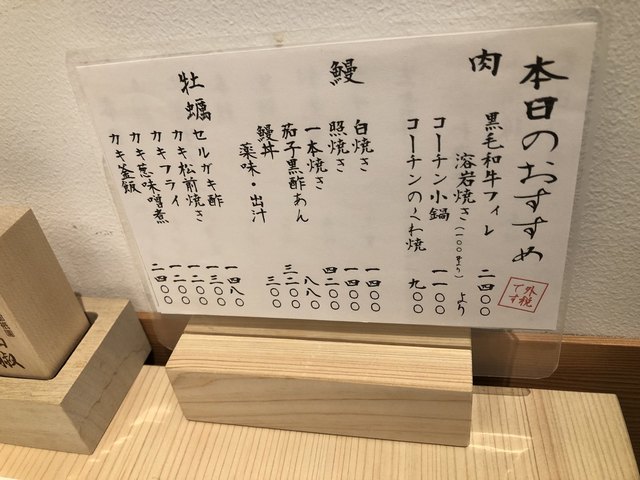 本日のおすすめ
外税です
肉
黒毛和牛フィレ 二四〇〇
溶岩焼き(一〇〇gより) より
コーチン小鍋 一一〇〇
コーチンのくわ焼 九〇〇
鰻
白焼き 一四〇〇
照焼き 一四〇〇
一本焼き 四二〇〇
茄子黒酢あん 八八〇
鰻丼 三二〇〇
薬味・出汁 三〇〇
牡蠣
セルガキ酢 一四八〇
カキ松前焼き 一三〇〇
カキフライ 一二〇〇
カキ葱味噌煮 一二〇〇
カキ釜飯 二四〇〇